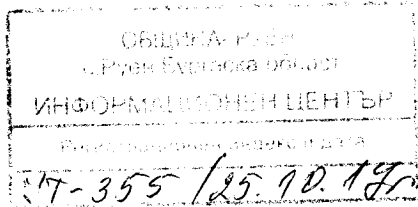 ОБЩИНА- РУЕН
с.Руен Бургаска област
ИНФОРМАЦИОНЕН ЦЕНТЪР
Регистрационен индекс и дата
-355 /25.10.19г.